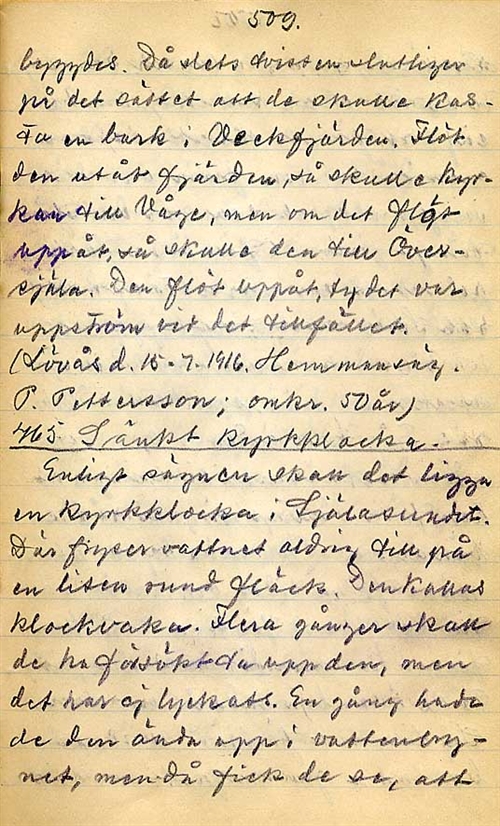 509.
byggdes. Då slets tvisten slutligen
på det sättet att de skulle kas-
ta en bark i Veckfjärden. Flöt
den utåt fjärden, så skulle kyr-
kan till Våge, men om det flöt
uppåt, så skulle den till Över-
själa. Den flöt uppåt, ty det var
uppström vid det tillfället.
(Lövås d. 15-7. 1916. Hemmansäg.
P. Pettersson; omkr. 50 år)
465. Sänkt kyrkklocka.
Enligt sägnen skall det ligga
en kyrkklocka i Själasundet.
Där fryser vattnet aldrig till på
en liten rund fläck. Den kallas
klockvaka. Flera gånger skall
de ha försökt ta upp den, men
det har ej lyckats. En gång hade
de den ända upp i vattenbry-
net, men då fick de se, att